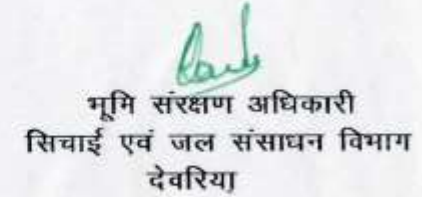 भूमि संरक्षण अधिकारी
सिचाई एवं जल संसाधन विभाग
देवरिया